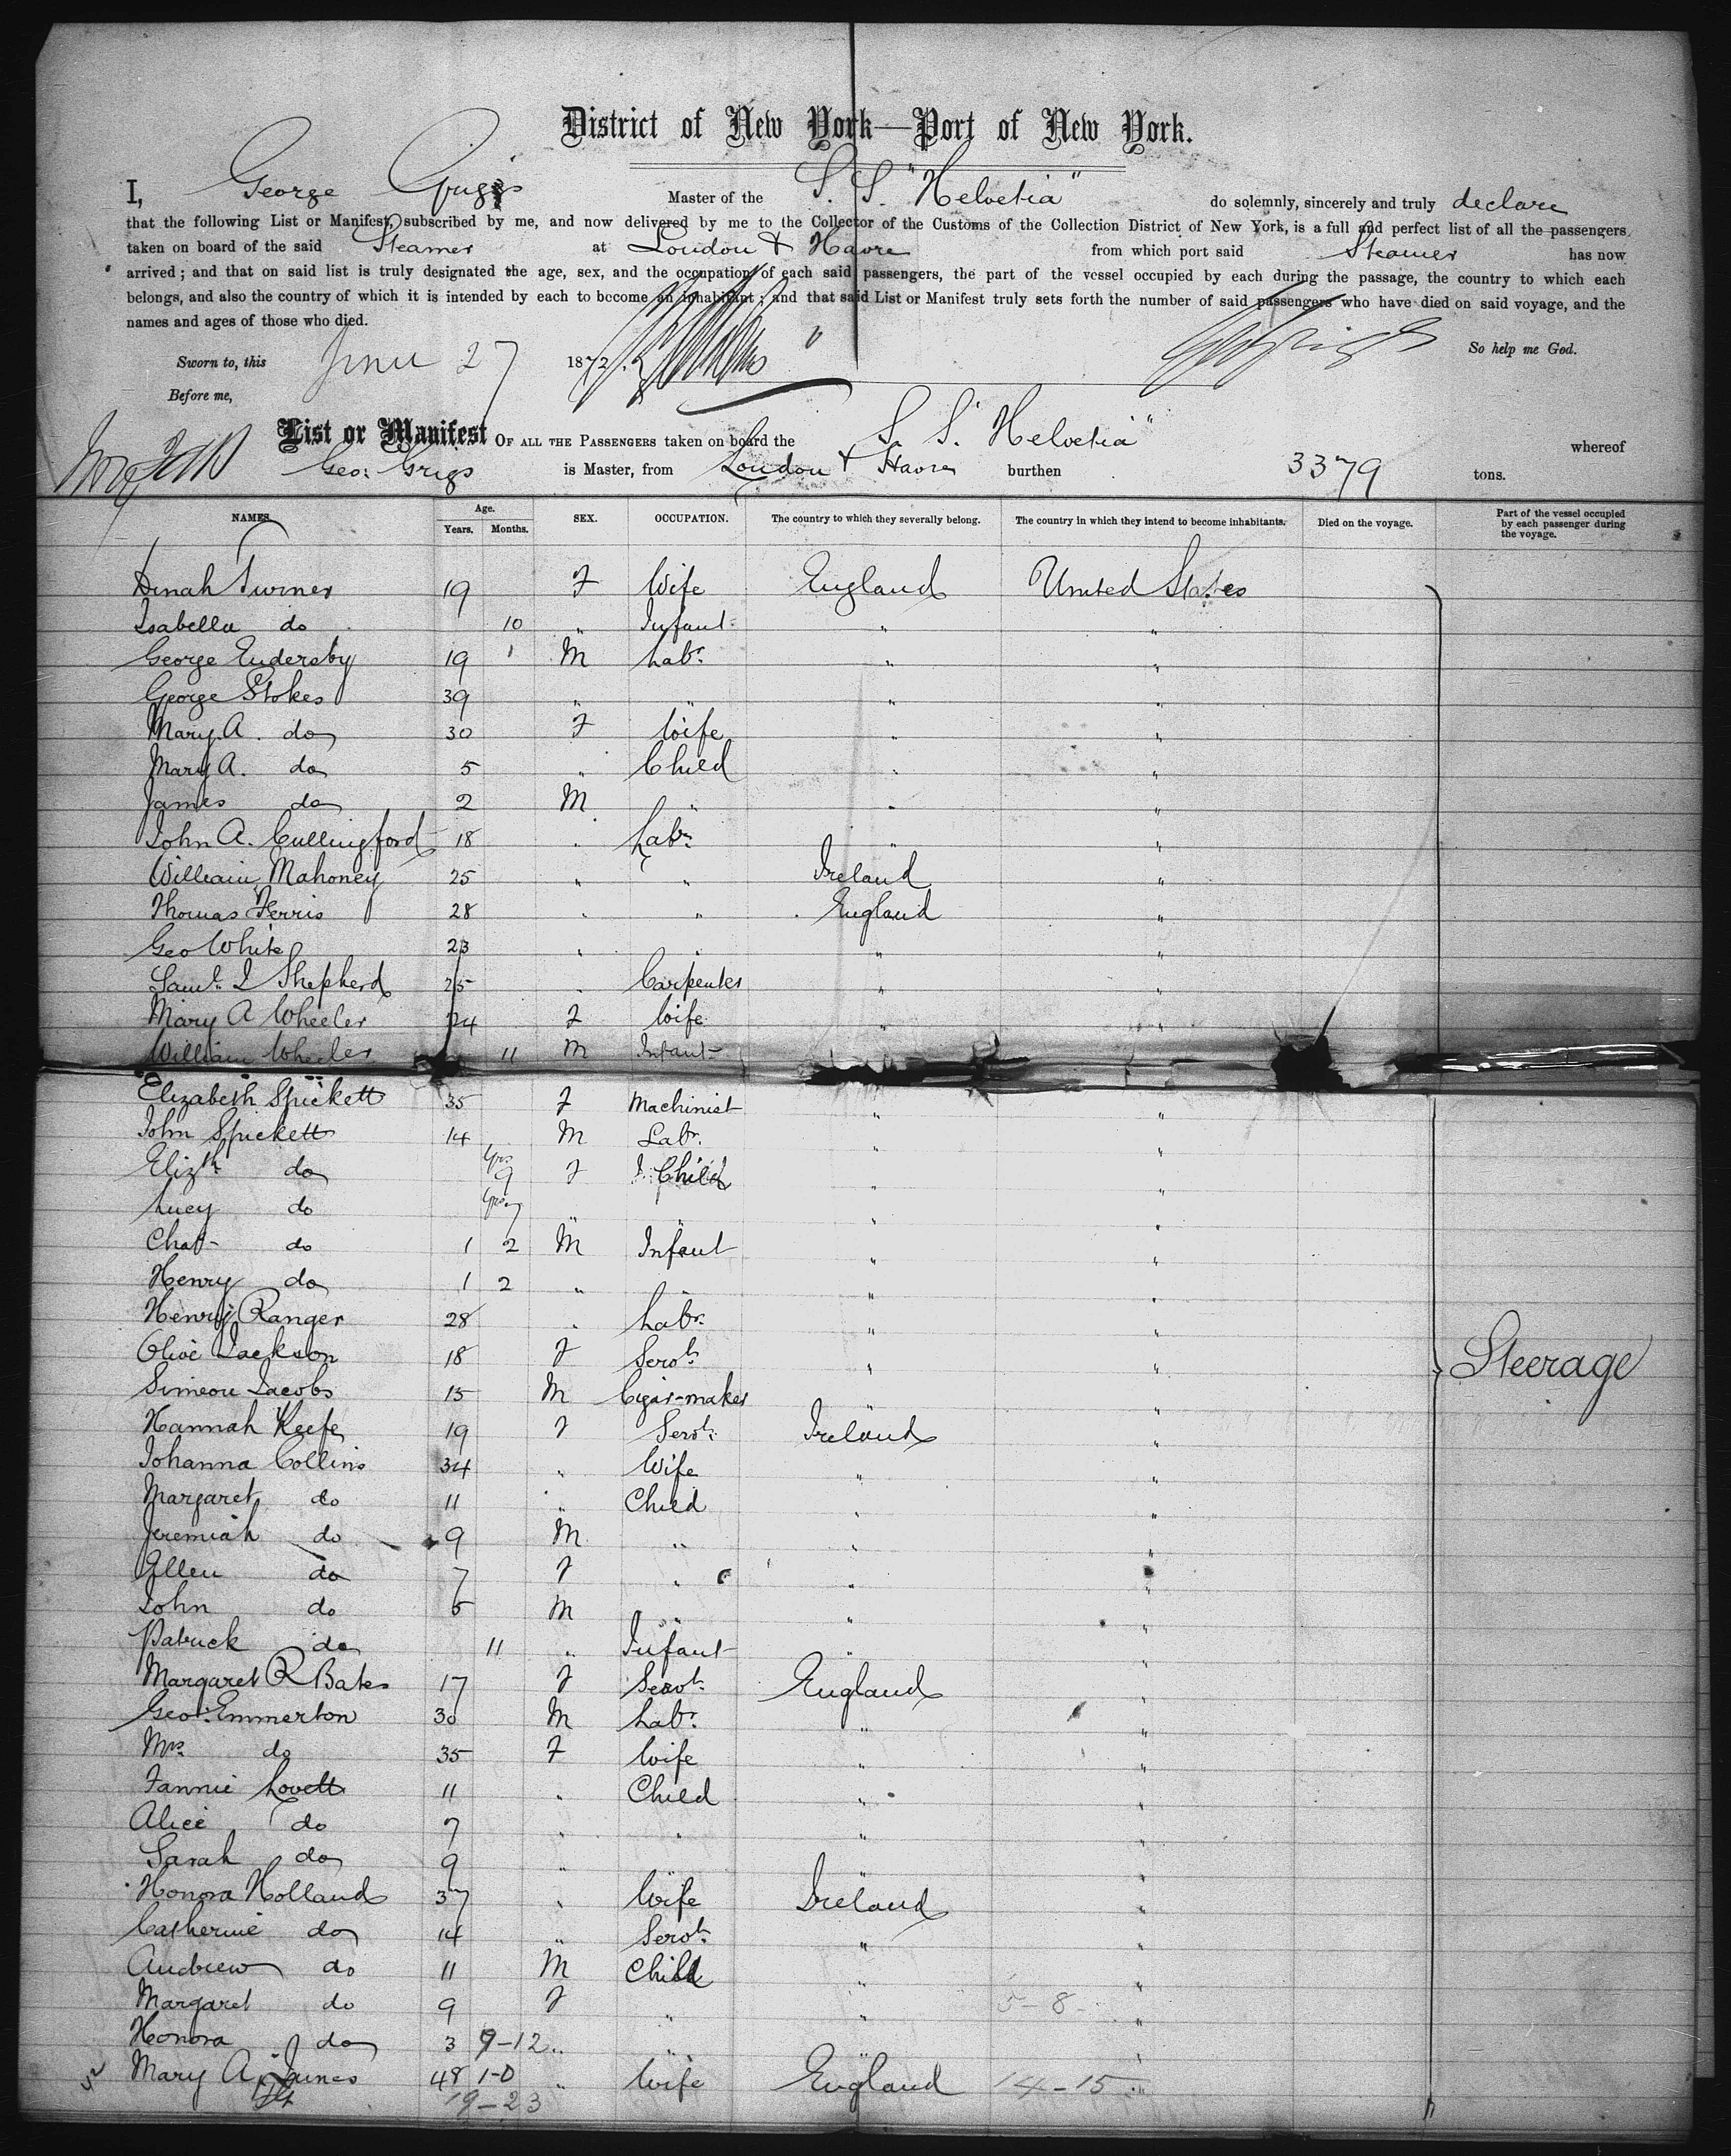 District of New York—Port of New York.
I, George Grigs Master of the S. S. "Helvetia" do solemnly, sincerely and truly declare
that the following List or Manifest, subscribed by me, and now delivered by me to the Collector of the Customs of the Collection District of New York, is a full and perfect list of all the passengers
taken on board of the said Steamer at London & Havre from which port said Steamer has now
arrived; and that on said list is truly designated the age, sex, and the occupation of each said passengers, the part of the vessel occupied by each during the passage, the country to which each
belongs, and also the country of which it is intended by each to become an inhabitant; and that said List or Manifest truly sets forth the number of said passengers who have died on said voyage, and the
names and ages of those who died.
Sworn to, this June 27 1872 So help me God.
Before me,
List or Manifest OF ALL THE PASSENGERS taken on board the S. S. "Helvetia" whereof
Geo: Grigs is Master, from London & Havre burthen 3379 tons.
NAMES. Age. Years. Months. SEX. OCCUPATION. The country to which they severally belong. The country in which they intend to become inhabitants. Died on the voyage. Part of the vessel occupied by each passenger during the voyage.
Dinah Turner 19 F Wife England United States
Isabella do 10 " Infant " "
George Endersby 19 M Labr. " "
George Stokes 39 " " " "
Mary A. do 30 F Wife " "
Mary A. do 5 " Child " "
James do 2 M " " "
John A. Cullingford 18 " Labr. " "
William Mahoney 25 " " Ireland "
Thomas Ferris 28 " " England "
Geo White 23 " " " "
Saml. I Shepherd 25 " Carpenter " "
Mary A Wheeler 24 F Wife " "
William Wheeler 11 M Infant
Elizabeth Spickett 35 F Machinist " "
John Spickett 14 M Labr. " "
Elizth do yrs 9 F Child " "
Lucy do yrs 7 " " " "
Chas do 1 2 M Infant " "
Henry do 1 2 " " " "
Henry Ranger 28 " Labr. " "
Olive Jackson 18 F Servt. " " Steerage
Simeon Jacobs 15 M Cigar-maker " "
Hannah Keefe 19 F Servt. Ireland "
Johanna Collins 34 " Wife " "
Margaret do 11 " Child " "
Jeremiah do 9 M " " "
Ellen do 7 F " " "
John do 5 M " " "
Patrick do 11 " Infant " "
Margaret R Bates 17 F Servt. England "
Geo. Emmerton 30 M Labr. " "
Mrs. do 35 F Wife " "
Fannie Lovett 11 " Child " "
Alice do 7 " " " "
Sarah do 9 " " " "
Honora Holland 37 " Wife Ireland "
Catherine do 14 " Servt. " "
Andrew do 11 M Child " "
Margaret do 9 F " " 5-8 "
Honora do 3 9-12 " " " "
42 Mary A. James 48 1-0 " Wife England 14-15 "
19-23